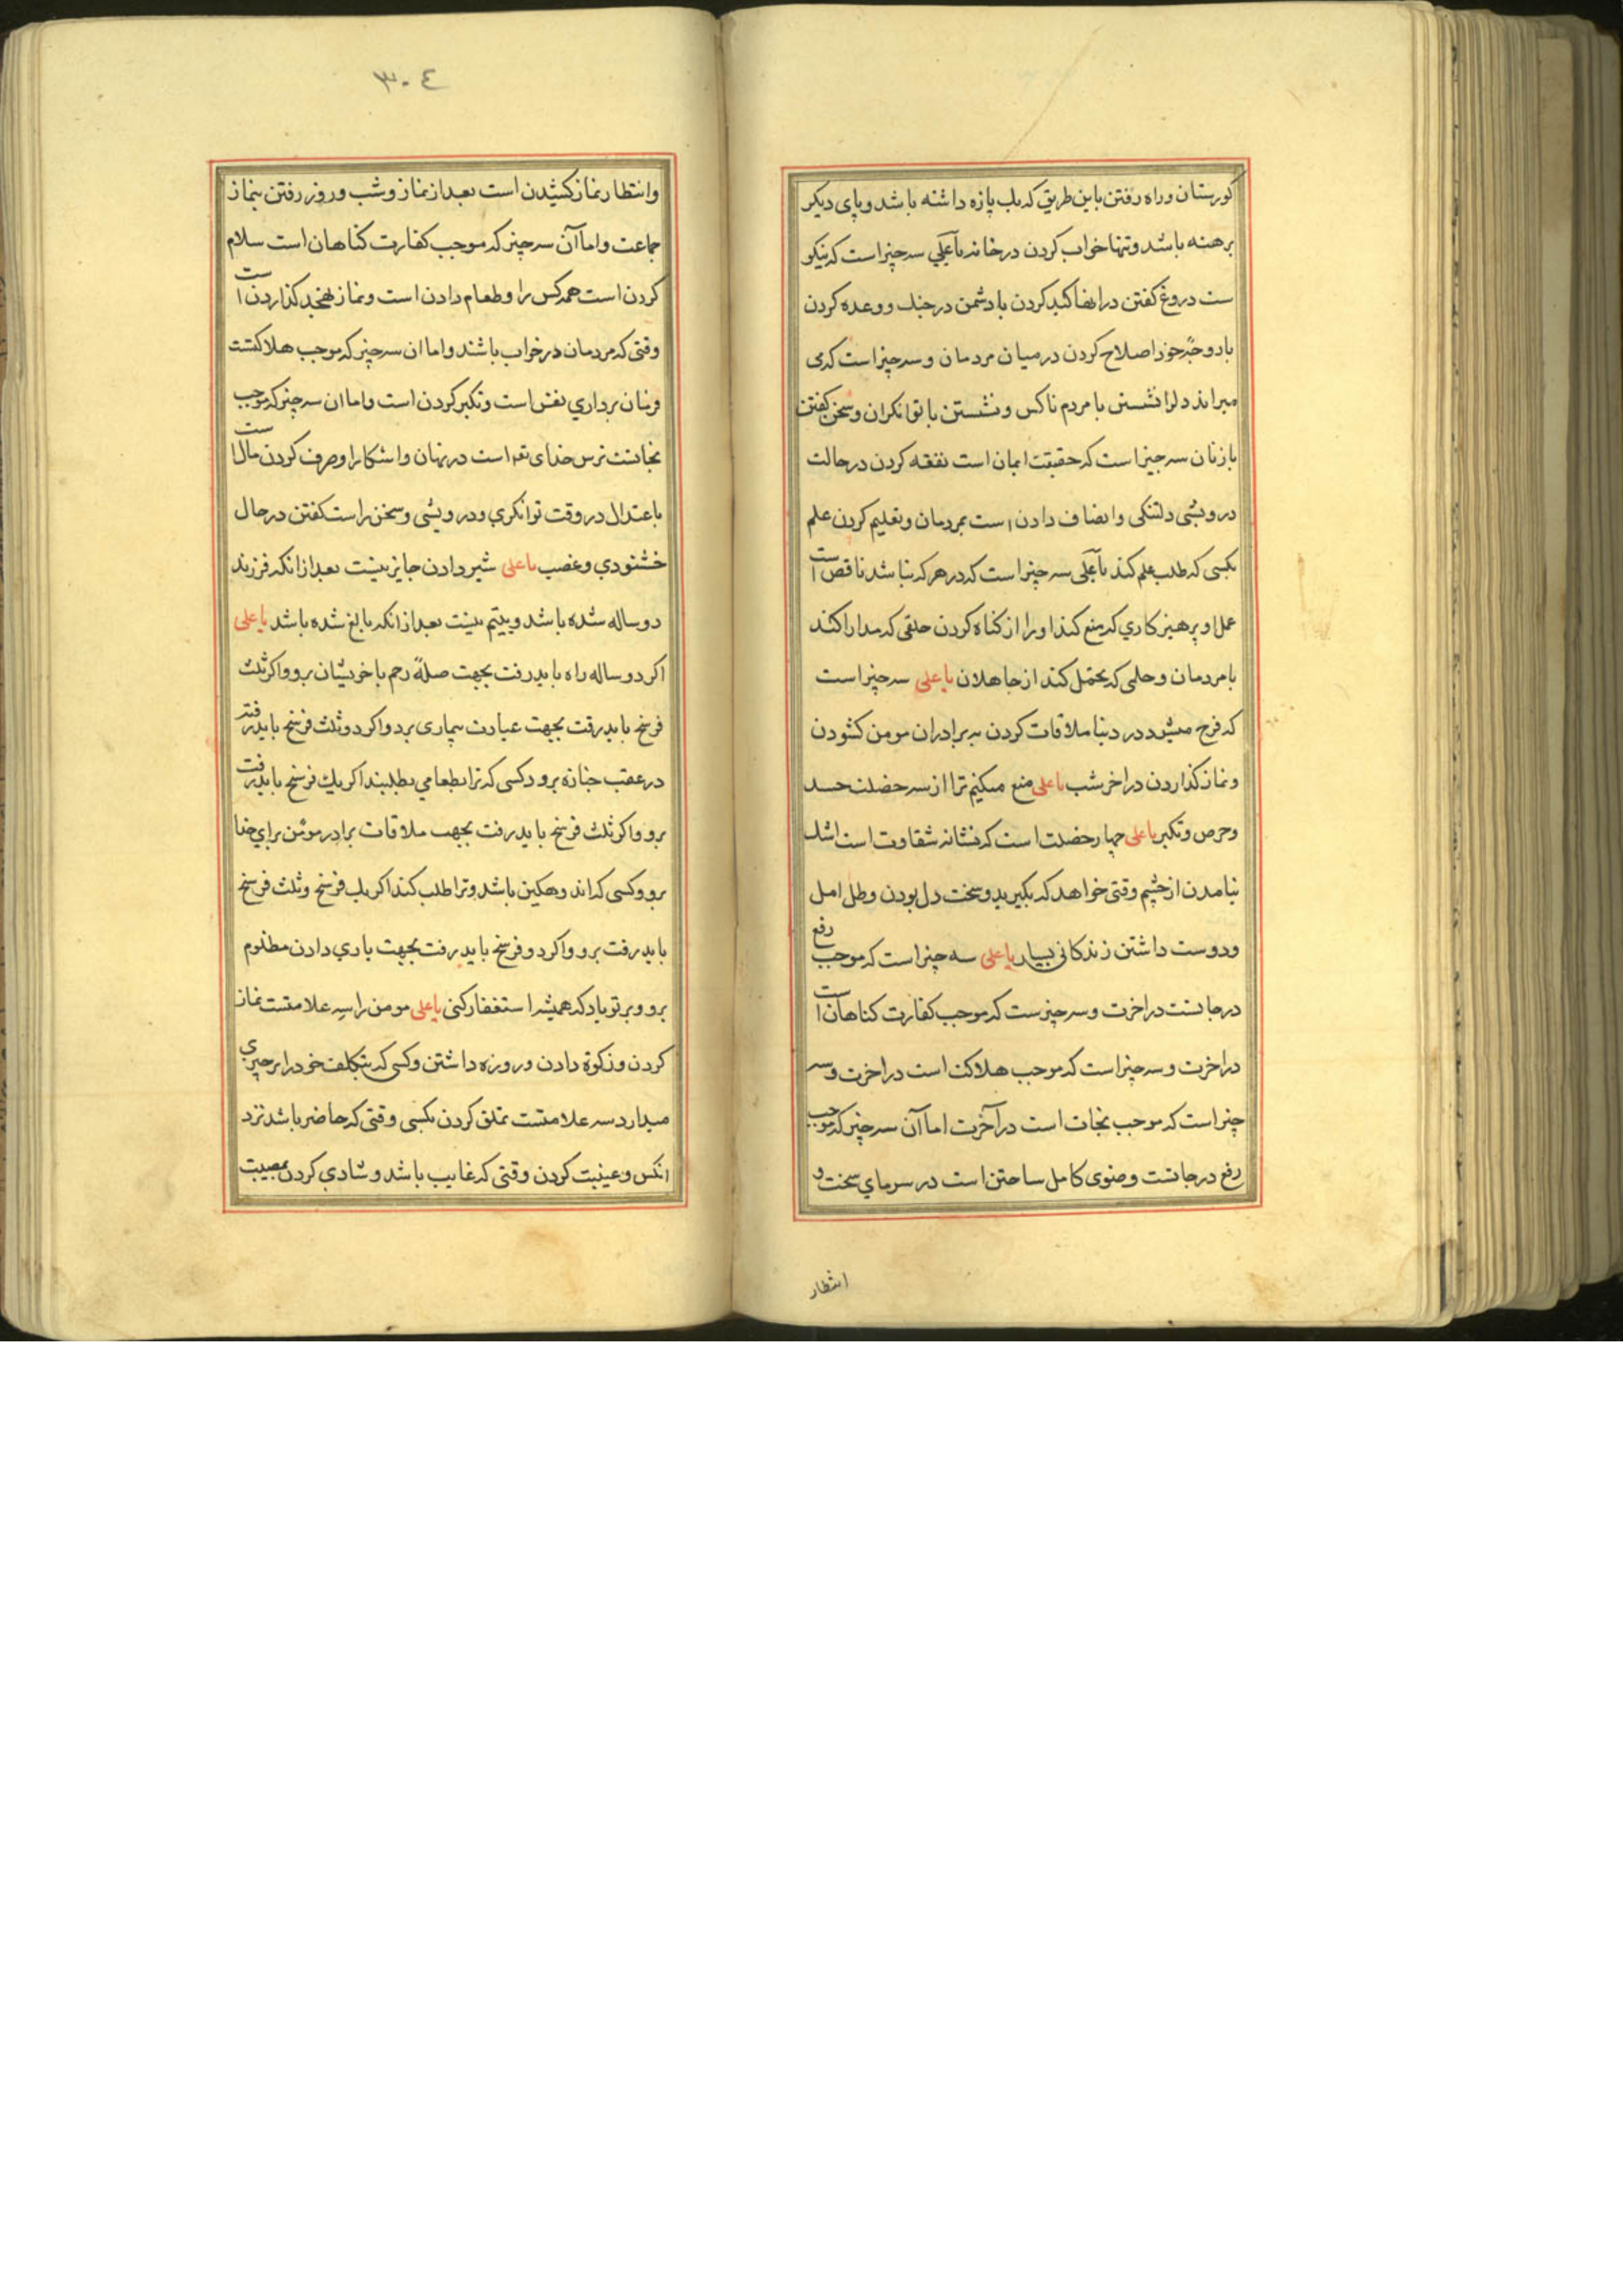 کورستان وراه رفتن باین طریق که یک پازه داشته باشد وپای دیکر
برهنه باشد وتنها خواب کردن درخانه یا علی سه چیز است که نیکو
ست دروغ کفتن درانها کید کردن بادشمن درجنک ووعده کردن
بازوجه خود اصلاح کردن درمیان مردمان وسه چیز است که می
میراند دلرا نشستن با مردم ناکس ونشستن با توانکران وسخن کفتن
بازنان سه چیز است که حقیقت ایمان است نفقه کردن درحالت
درویشی دلتنکی وانصاف دادن است بمردمان وتعلیم کردن علم
بکسی که طلب علم کند یا علی سه چیز است که درهرکه نباشد ناقص است
عمل وپرهیزکاری که منع کند اورا از کناه کردن خلقی که مدارا کند
بامردمان وحلمی که تحمل کند از جاهلان یا علی سه چیز است
که فرح میشود در دنیا ملاقات کردن به برادران مومن کشودن
ونماز کذاردن دراخر شب یا علی منع میکنیم ترا از سه خصلت حسد
وحرص وتکبر یا علی چهار خصلت است که نشانه شقاوت است اشک
نیامدن از چشم وقتی خواهد که بکیرید وسخت دل بودن وطل امل
ودوست داشتن زندکانی بسیار یا علی سه چیز است که موجب رفع
درجاتست دراخرت وسه چیزست که موجب کفارت کناهان است
دراخرت وسه چیز است که موجب هلاکت است دراخرت وسه
چیز است که موجب نجات است درآخرت اما آن سه چیز که موجب
رفع درجاتست وضوی کامل ساختن است در سرمای سخت و
انتظار
٣٠٤
وانتظار نماز کشیدن است بعد از نماز وشب وروز رفتن بنماز
جماعت واما آن سه چیز که موجب کفارت کناهان است سلام
کردن است همه کس را وطعام دادن است ونماز تهجد کذاردن است
وقتی که مردمان درخواب باشند واما ان سه چیز که موجب هلاکتست
فرمان برداری نفس است وتکبر کردن است واما ان سه چیز که موجب
نجاتست ترس خدای تعا است درنهان واشکارا وصرف کردن مال است
باعتدال دروقت توانکری ودرویشی وسخن راست کفتن درحال
خشنودی وغضب یا علی شیر دادن جایز نیست بعد ازانکه فرزند
دوساله شده باشد ویتیم نیست بعد ازانکه بالغ شده باشد یا علی
اکر دوساله راه باید رفت بجهت صلهٔ رحم باخویشان برو واکر ثلث
فرسخ باید رفت بجهت عیادت بیماری برو واکر دوثلث فرسخ باید رفت
درعقب جنازه برو دکسی که ترا بطعامی بطلبند اکر یک فرسخ باید رفت
برو واکر ثلث فرسخ باید رفت بجهت ملاقات برادر مومن برای خدا
برو وکسی که اندوهکین باشد وترا طلب کند اکر یک فرسخ وثلث فرسخ
باید رفت برو واکر دو فرسخ باید رفت بجهت یاری دادن مظلوم
برو وبرتو باد که همیشه استغفار کنی یا علی مومن را سه علامتست نماز
کردن وزکوة دادن وروزه داشتن وکسی که بتکلف خودرا برچیزی
میدارد سه علامتست تملق کردن بکسی وقتی که حاضر باشد نزد
انکس وغیبت کردن وقتی که غایب باشد وشادی کردن بمصیبت